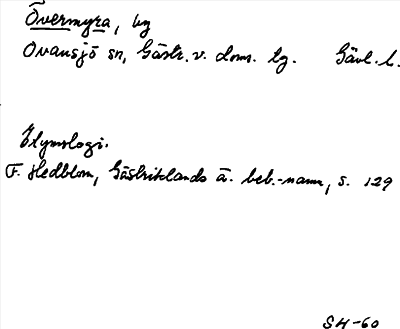 Övermyra, by
Ovansjö sn, Gästr. v. doms. tg. Gävl. l.
Etymologi.
F. Hedblom, Gästriklands ä. beb.-namn, s. 129
SH-60